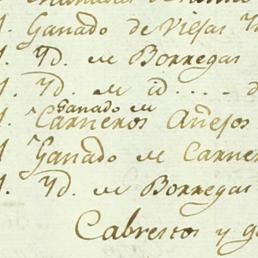 Ganado de Viejas
Yd. de Borregas
Yd. de id . . . . .
Ganado de
Carneros Añejos
Ganado de Carne
Yd. de Borregas
Cabrestos y g